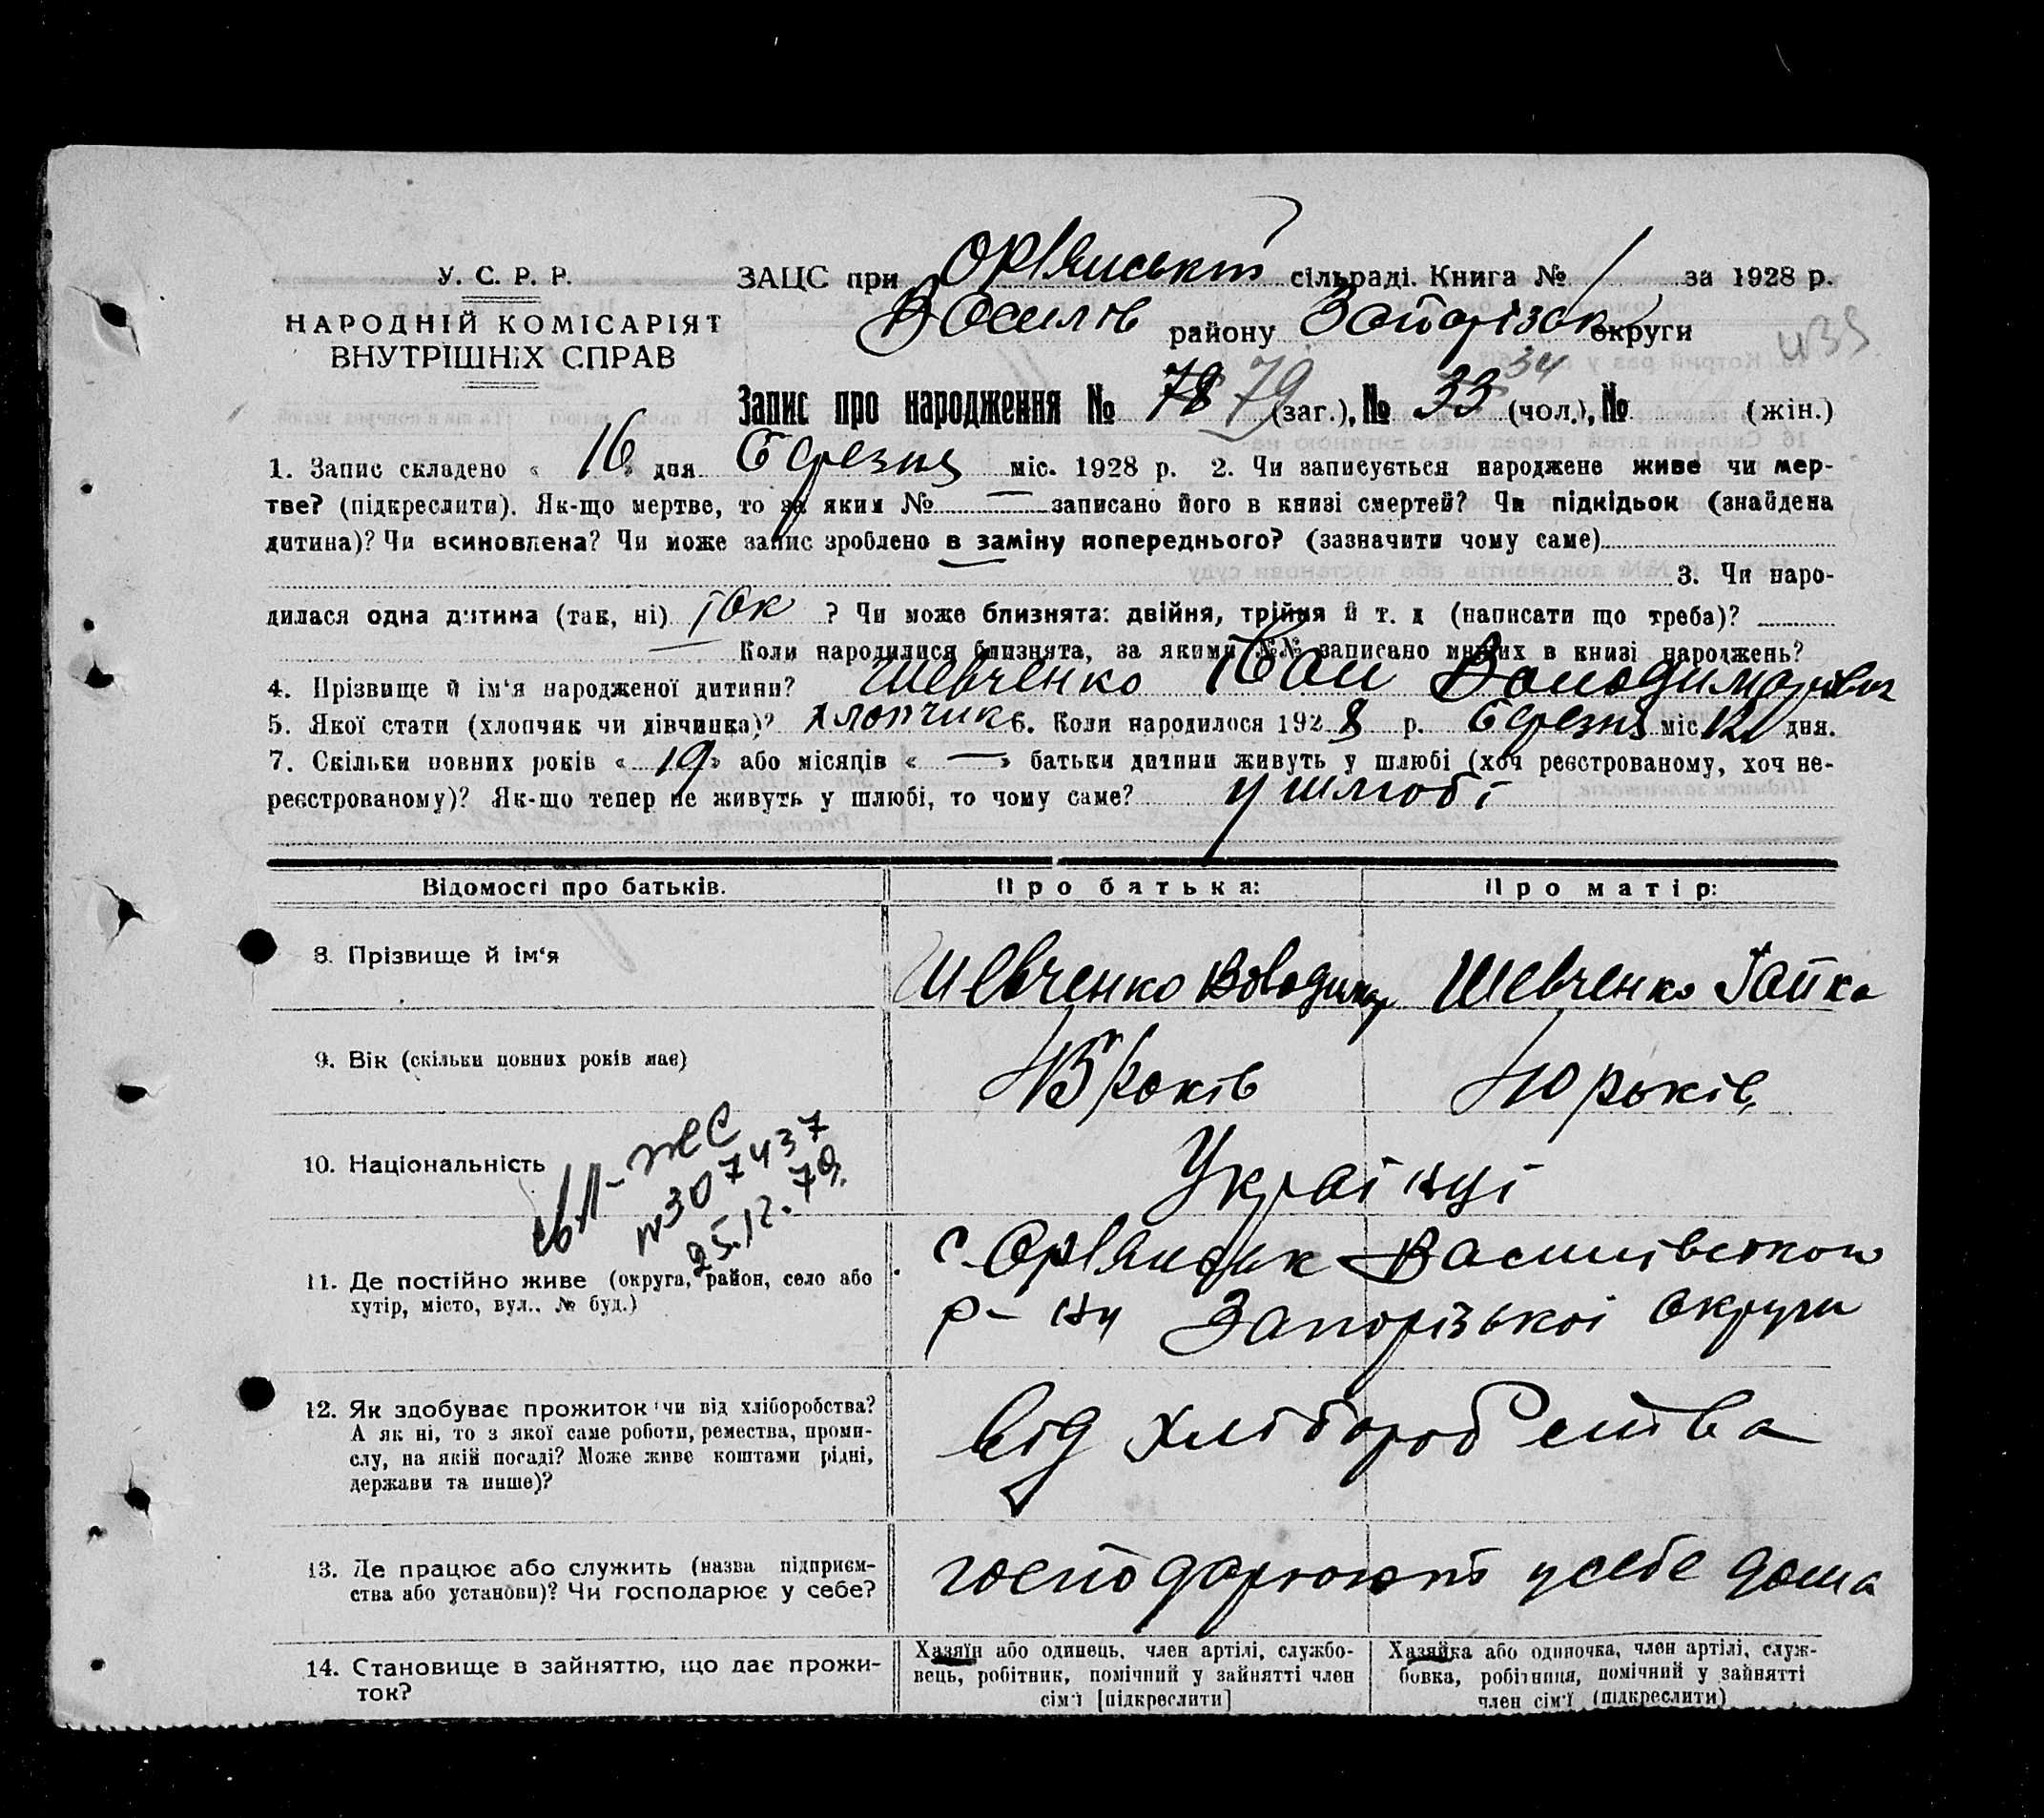 У. С. Р. Р.
НАРОДНІЙ КОМІСАРІЯТ
ВНУТРІШНІХ СПРАВ
ЗАЦС при Орлянській сільраді. Книга № 1 за 1928 р.
Василів району Запорізок округи
Запис про народження № 78 79 (заг.), № 33 34 (чол.), № (жін.)
1. Запис складено « 16 » дня березня міс. 1928 р. 2. Чи записується народжене живе чи мер-
тве? (підкреслити). Як-що мертве, то за яким № — записано його в книзі смертей? Чи підкідьок (знайдена
дитина)? Чи всиновлена? Чи може запис зроблено в заміну попереднього? (зазначити чому саме)
3. Чи наро-
дилася одна дитина (так, ні) так ? Чи може близнята: двійня, трійня й т. д (написати що треба)?
— Коли народилися близнята, за якими №№ записано инших в книзі народжень?
4. Прізвище й ім'я народженої дитини? Шевченко Іван Володимирович
5. Якої стати (хлопчик чи дівчинка)? хлопчик 6. Коли народилося 1928 р. березня міс 12 дня.
7. Скільки повних років « 19 » або місяців « — » батьки дитини живуть у шлюбі (хоч реєстрованому, хоч не-
реєстрованому)? Як-що тепер не живуть у шлюбі, то чому саме? у шлюбі
Відомості про батьків. Про батька: Про матір:
8. Прізвище й ім'я Шевченко Володимир Шевченко Гапка
9. Вік (скільки повних років має) 45 років 40 років
10. Національність Українці
св. II-ЖС
№307437
25.12.79.
11. Де постійно живе (округа, район, село або
хутір, місто, вул., № буд.)
с. Орлянськ Василівського
р-ну Запорізької округи
12. Як здобуває прожиток чи від хліборобства?
А як ні, то з якої саме роботи, ремества, проми-
слу, на якій посаді? Може живе коштами рідні,
держави та инше)?
від хліборобства
13. Де працює або служить (назва підприєм-
ства або установи)? Чи господарює у себе?
господарюють у себе дома
14. Становище в зайняттю, що дає прожи-
ток?
Хазяїн або одинець, член артілі, службо-
вець, робітник, помічний у зайнятті член
сім'ї [підкреслити]
Хазяйка або одиночка, член артілі, служ-
бовка, робітниця, помічний у зайнятті
член сім'ї (підкреслити)